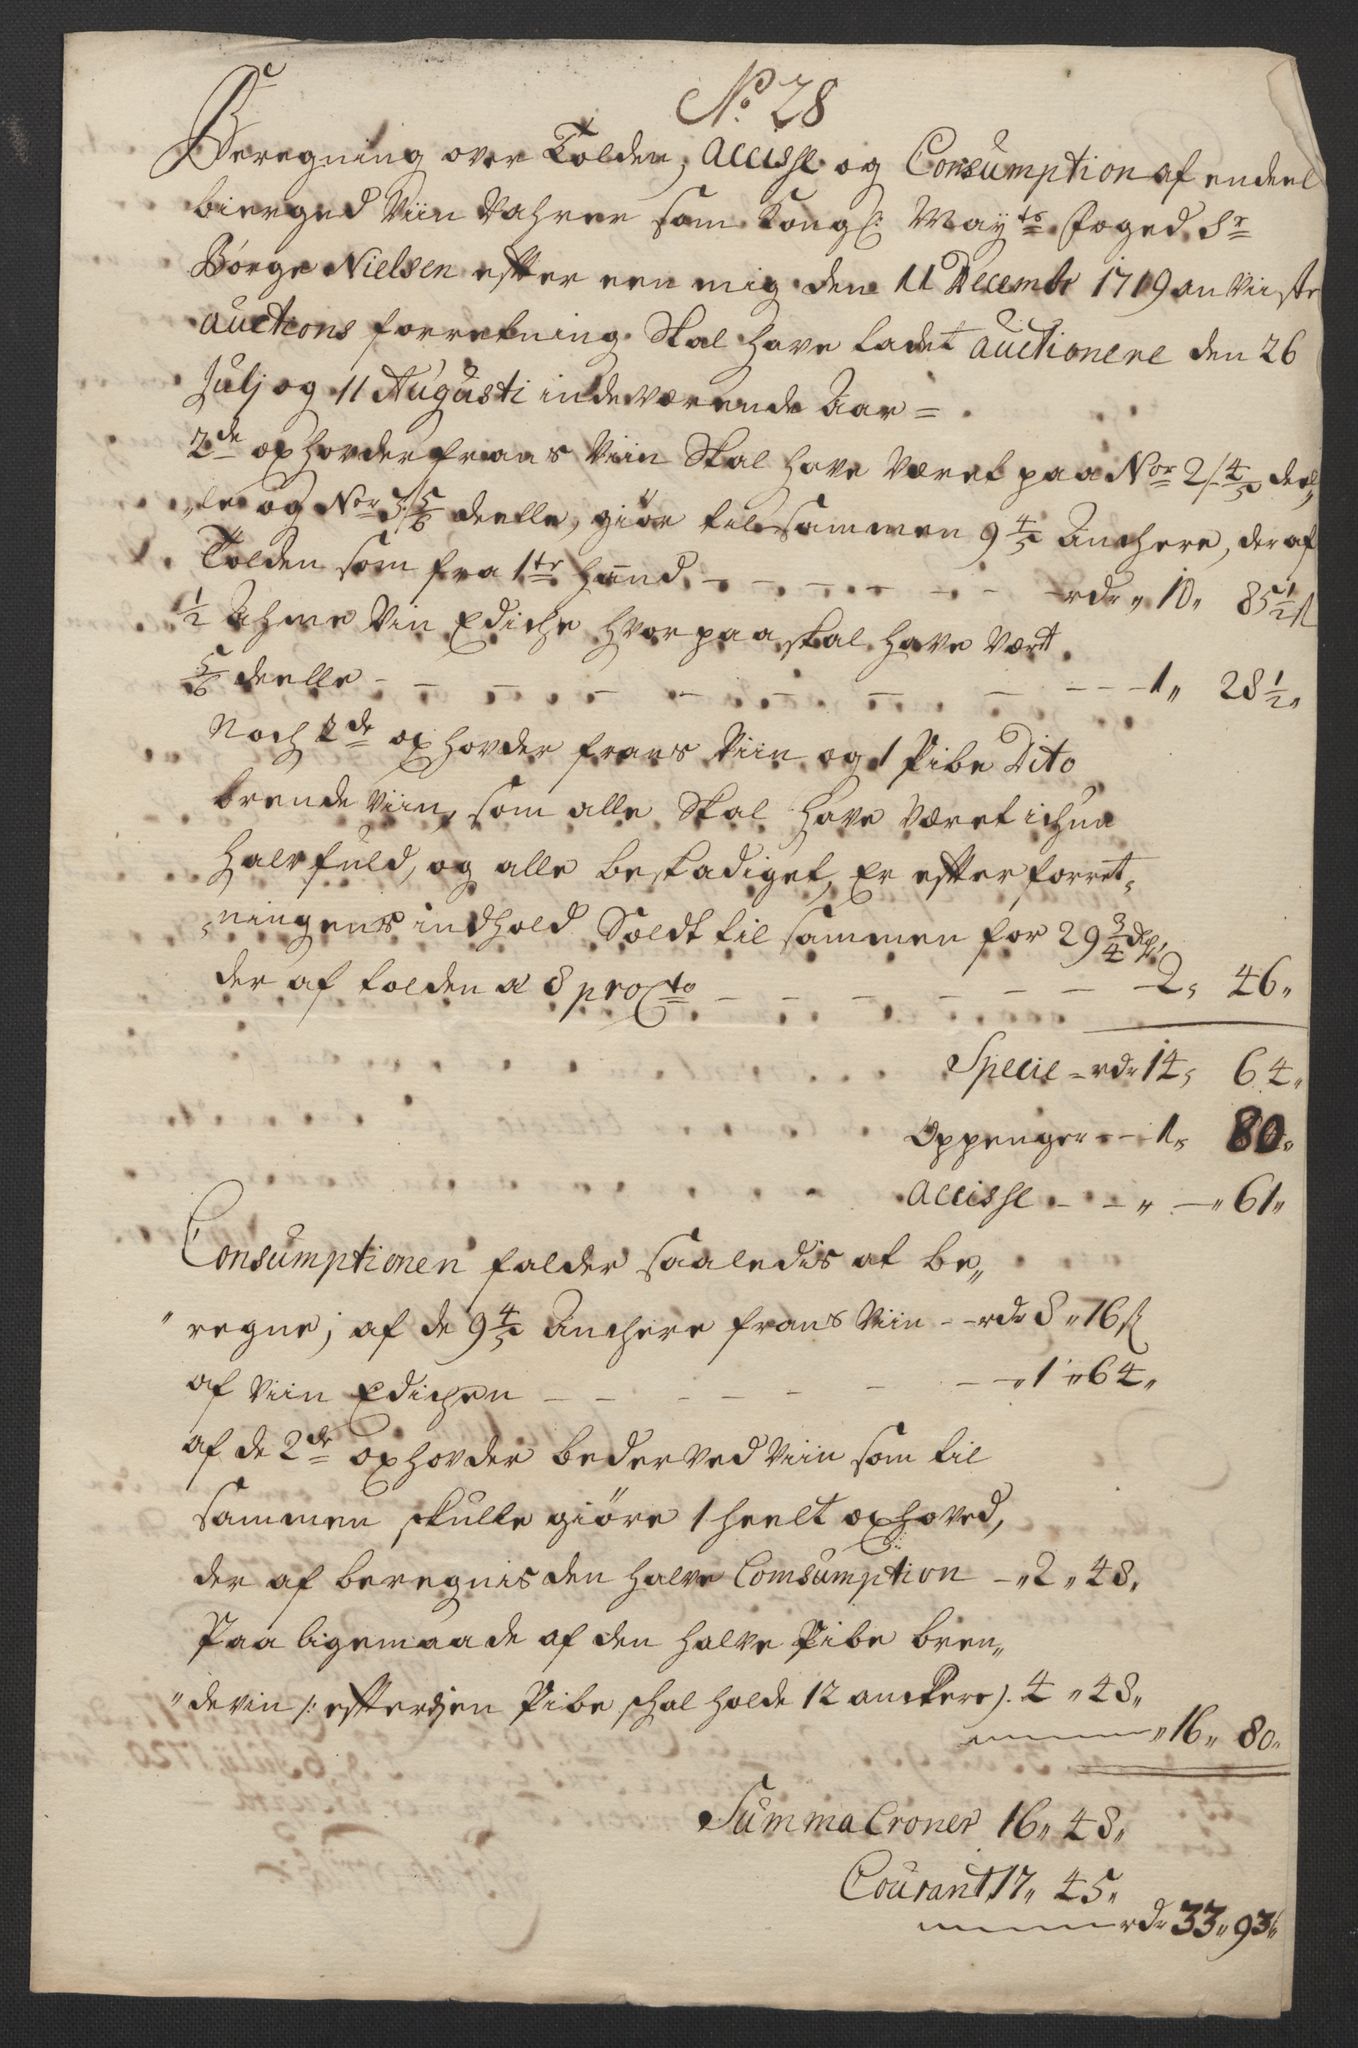 No. 28
Beregning over Tolden, Accisse og Consumption af endeel
bierged Viin Vahrer som Kongl: Mayts Foged Sr
Børge Nielsen efter een mig den 11 Decembr 1719 anviiste
Auctions forretning Skal have ladet auctionere den 26
Julj og 11 Augusti indeværende Aar =
2de oxhovder frans Viin Skal have Været paa Nor 2/ 4/5 deel,,
,,le og Nor 3/ 5/6 deelle, giør tilsammen 9 4/5 Anchere, der af
Tolden som fra 1te Hand - - - - - rdr ,, 10 ,, 85 1/2 ß
1/2 Ahme Vin Ediche hvor paa skal have Vært
5/6 deelle - - - - - - - - - 1 ,, 28 1/2 ,,
Noch 2de oxhovder frans Viin og 1 Pibe Dito
brende Viin, som alle Skal have Været ichun
halvfuld, og alle beskadiget, Er efter forret,,
,,ningens indhold Soldt til sammen for 29 3/4 dlr
der af tolden a 8 proCto - - - - - - 2 ,, 46 ,,
Specie - rdr 14 ,, 64 ,,
Oppenger - - 1 ,, 80 ,,
Accisse - - ,, - ,, 61 ,,
Consumptionen falder saaledis at be,,
,, regne, af de 9 4/5 Anchere frans Viin - - rdr 8 ,, 16 ß
af Viin Edichen - - - - - - - ,, 1 ,, 64 ,,
af de 2de oxhovder bederved Viin som til
sammen skulle giøre 1 heelt oxhoved,
der af beregnis den halve Comsumption - ,, 2 ,, 48 ,,
Paa ligemaade af den halve Pibe bren,,
,, devin /: efftersom Pibe schal holde 12 anckere ). 4 ,, 48 ,,
,, 16 ,, 80 ,,
Summa Croner 16 ,, 48 ,,
Courant 17 ,, 45 ,,
rdr 33 ,, 93 ß